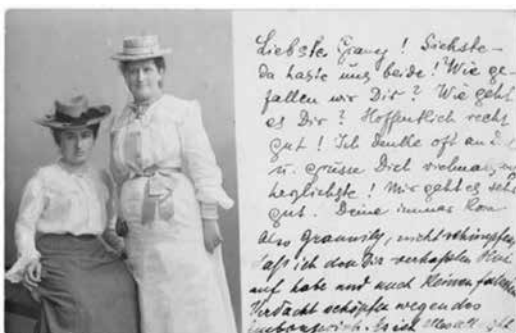 Liebster Grany! Siehste
da haste uns beide! Wie ge-
fallen wir Dir? Wie geht
es Dir? Hoffentlich recht
gut! Ich denke oft an D
u. grüsse Dich vielmal
herzlichste! Mir geht es seh
gut. Deine immer
Also Grannily, nicht schimpfen,
daß ich den Dir verhaßten Hut
auf habe und auch keinen falschen
Verdacht schöpfen wegen des